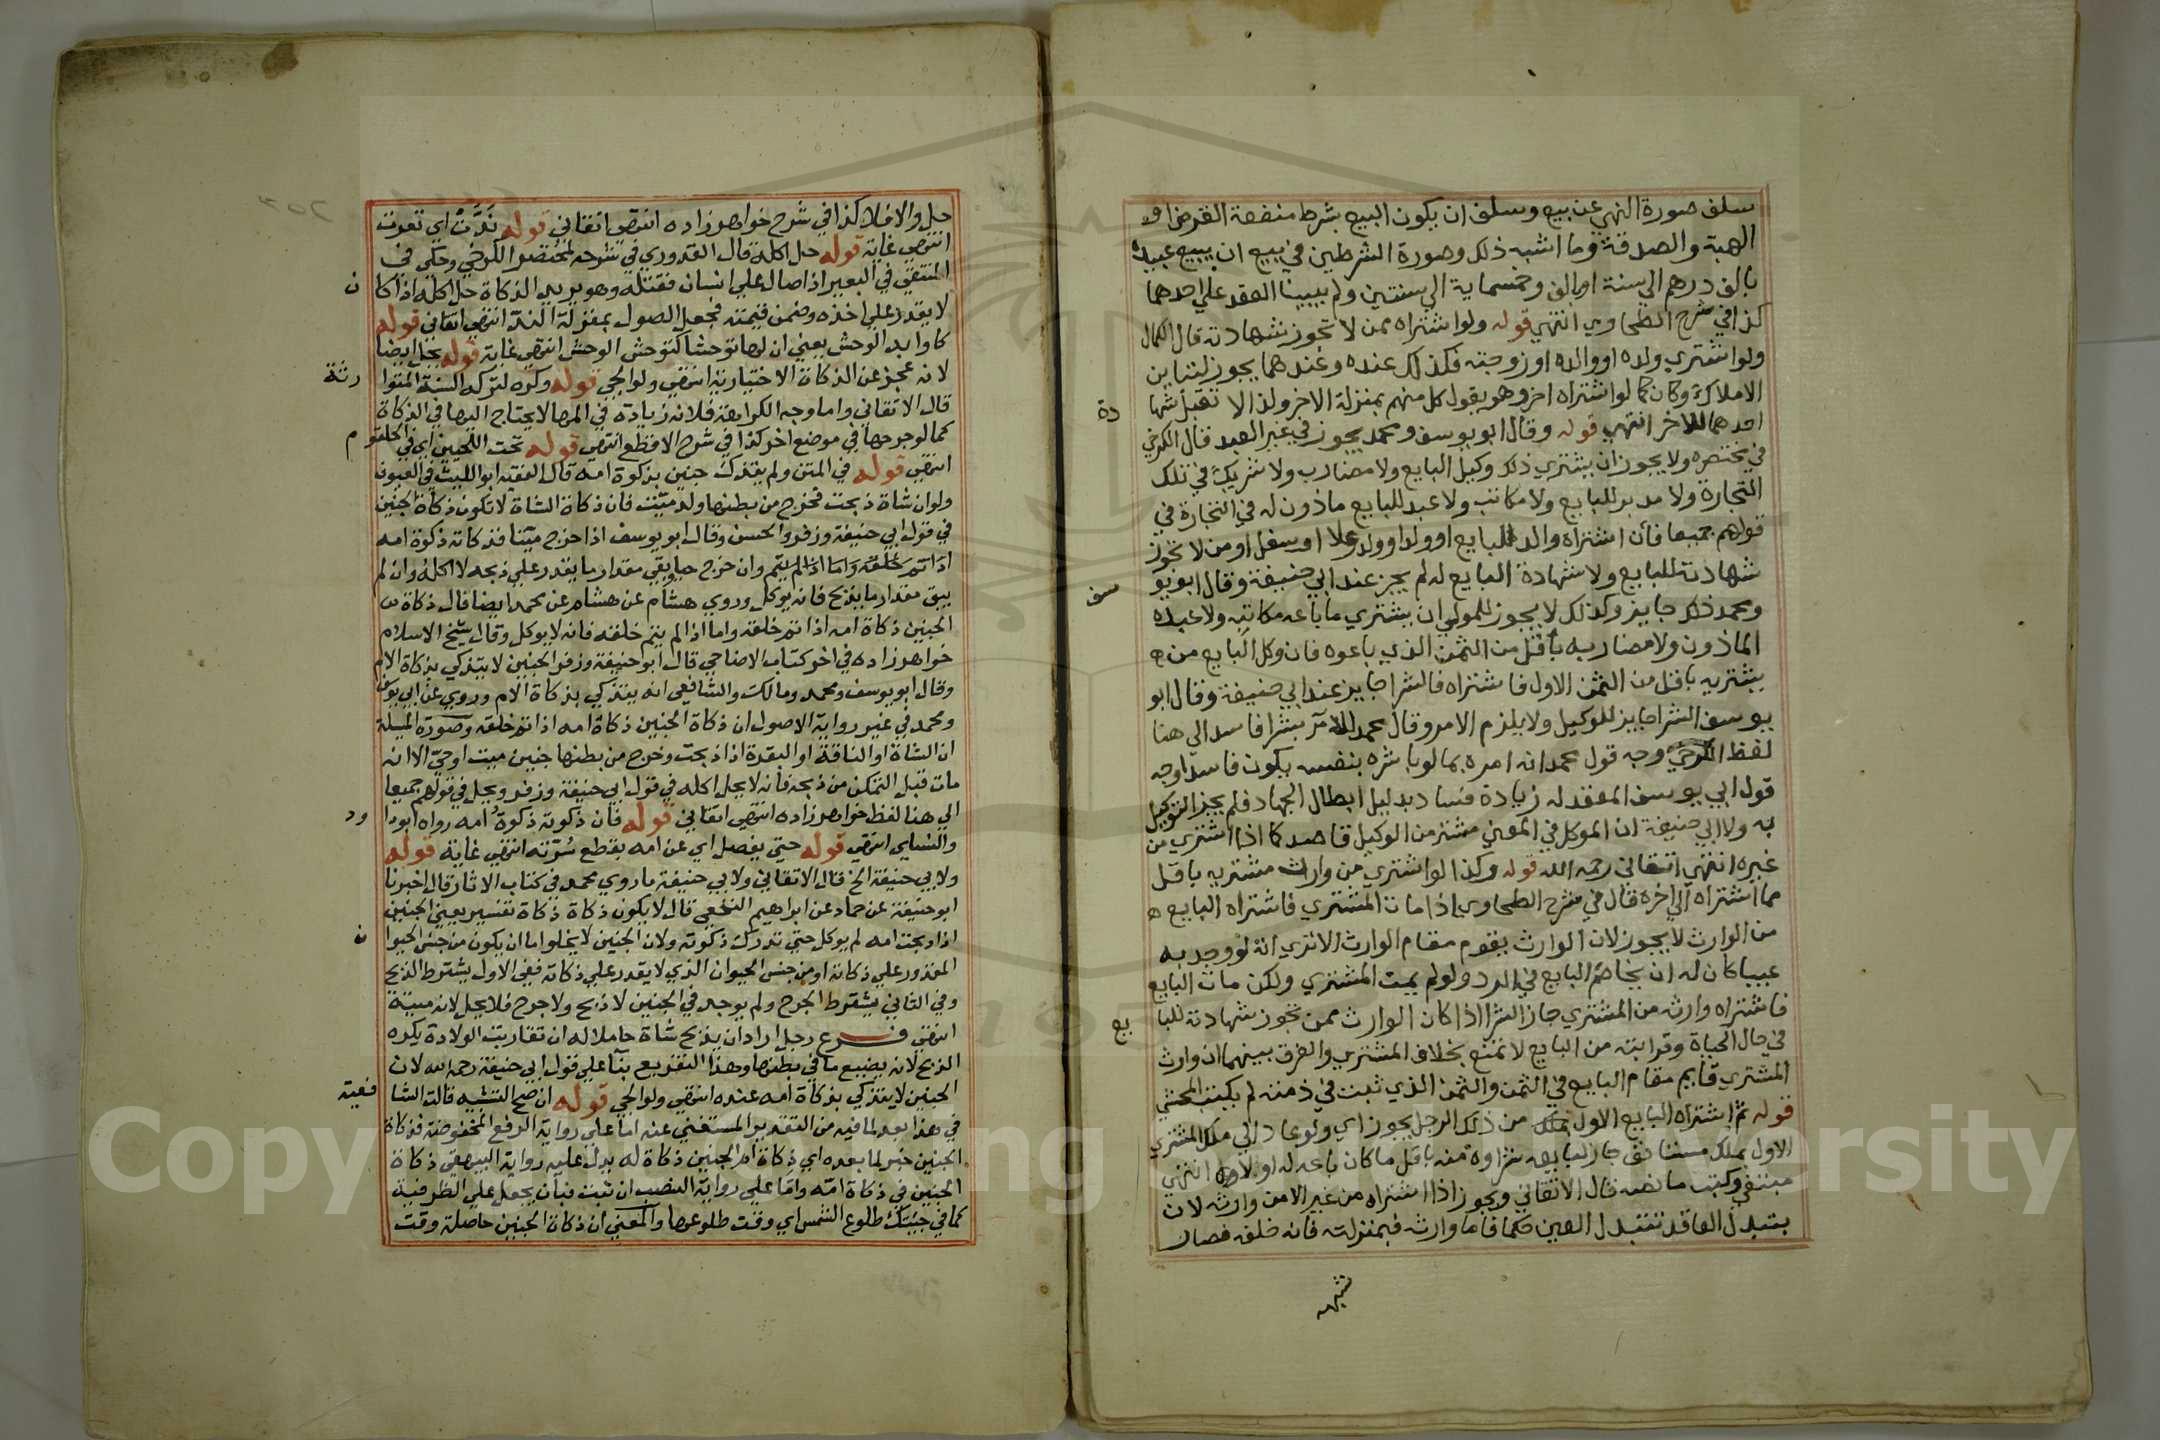 سلف صورة النهي عن بيع وسلف ان يكون البيع بشرط منفعة القرض او
الهبة والصدقة وما اشبه ذلك وصورة الشرطين في بيع ان يبيع عبيده
بالف درهم الى سنة او بالف وخمسماية الي سنتين ولم يبينا العقد علي احدهما
كذا في شرح الطحاوي انتهي قوله ولو اشتراه ممن لا تجوز شهادته قال الكمال
ولو اشتري ولده او والده او زوجته فكذلك عنده وعندهما يجوز لتباين
الاملاك وكان كما لو اشتراه اخر وهو يقول كل منهم بمنزلة الاخر ولذا لا تقبل شها
دة
احدهما للاخر انتهي قوله وقال ابو يوسف ومحمد يجوز في غير العبد قال الكرخي
في مختصره ولا يجوز ان يشتري ذلك وكيل البايع ولا مضارب ولا شريك في تلك
التجارة ولا مدبر للبايع ولا مكاتب ولا عبد للبايع ماذون له في التجارة في
قولهم جميعا فان اشتراه والد للبايع او ولد او ولد وعلا او سفل او من لا تجوز
شهادته للبايع ولا شهادة البايع له لم يجز عند ابي حنيفة وقال ابو يو
سف
ومحمد ذلك جايز وكذلك لا يجوز للمولي ان يشتري ما باعه مكاتبه ولا عبده
الماذون ولا مضاربه باقل من الثمن الذي باعوه فان وكل البايع من
يشتريه باقل من الثمن الاول فاشتراه فالشرا جايز عند ابي حنيفة وقال ابو
يوسف الشرا جايز للوكيل ولا يلزم الامر وقال محمد للآمر بشرا فاسد الي هنا
لفظ الكرخي وجه قول محمد انه امره بما لو باشره بنفسه يكون فاسدا وجه
قول ابي يوسف المعقد له زيادة فساد بدليل ابطال الجهاد فلم يجز التوكيل
به ولابي حنيفة ان الموكل في المعني مشتر من الوكيل قاصد كما اذا اشتري من
غيره انتهي اتقاني رحمه الله قوله وكذا لو اشتري من وارث مشتريه باقل
مما اشتراه الي اخره قال في شرح الطحاوي اذا مات المشتري فاشتراه البايع
من الوارث لا يجوز لان الوارث يقوم مقام الوارث الا تري انه لو وجد به
عيبا كان له ان يخاصم البايع في الرد ولو لم يمت المشتري ولكن مات البايع
فاشتراه وارثه من المشتري جاز الشرا اذا كان الوارث ممن تجوز شهادته للبا
يع
في حال الحياة وقرابته من البايع لا تمنع بخلاف المشتري والفرق بينهما ان وارث
المشتري قايم مقام البايع في الثمن والثمن الذي ثبت في ذمته لم يكتب المحشي
قوله ثم اشتراه البايع الاول بملك من ذلك الرجل يجوز اي ولو عاد الي ملك المشتري
الاول بملك مستانف جاز لبايعه شراوه منه باقل ما كان باعه له اولا اه انتهي
وكتب ما نصه قال الاتقاني ويجوز اذا اشتراه من غيره الا من وارثه لان
بتبدل العاقد تتبدل العين حكما فاما وارثه فبمنزلته فانه خلفه فصار
حل والا فلا كذا في شرح خواهر زاده انتهي اتقاني قوله ندت اي تعرت
انتهي غاية قوله حل اكله قال القدوري في شرحه لمختصر الكرخي وحكي في
المنتقي في البعير اذا صال علي انسان فقتله وهو يريد الذكاة حل اكله اذا كا
ن
لا يقدر علي اخذه وضمن قيمته فجعل الصول بمنزلة الند انتهي اتقاني قوله
كاوابد الوحش يعني ان لها توحشا كتوحش الوحش انتهي غاية قوله يحل ايضا
لانه عجز عن الذكاة الاختيارية انتهي ولوالجي قوله وكره لتركه السنة المتوا
رثة
قال الاتقاني واما وجه الكراهة فلانه زيادة في المها لا يحتاج اليها في الذكاة
كما لو جرحها في موضع اخر كذا في شرح الاقطع انتهي قوله تحت اللحيين اي في الحلقو
م
انتهي قوله في المتن ولم يتذك جنين بذكوة امه قال الفقيه ابو الليث في العيون
ولو ان شاة ذبحت فخرج من بطنها ولد ميت فان ذكاة الشاة لا تكون ذكاة الجنين
في قول ابي حنيفة وزفر والحسن وقال ابو يوسف اذا خرج ميتا فذكاته ذكوة امه
اذا تم خلقه واما اذا لم يتم وان خرج حيا وبقي مقدار ما يقدر علي ذبحه لا اكله وان لم
يبق مقدار ما يذبح فانه يوكل وروي هشام عن هشام عن محمد ايضا قال ذكاة
الجنين ذكاة امه اذا تم خلقه واما اذا لم يتم خلقه فانه لا يوكل وقال شيخ الاسلام
خواهر زاده في اخر كتاب الاضاحي قال ابو حنيفة وزفر الجنين لا يتذكي بذكاة الام
وقال ابو يوسف ومحمد ومالك والشافعي انه يتذكي بذكاة الام وروي عن ابي يوسف
ومحمد في غير رواية الاصول ان ذكاة الجنين ذكاة امه اذا تم خلقه وصورة المسيلة
ان الشاة او الناقة او البقرة اذا ذبحت وخرج من بطنها جنين ميت او حي الا انه
مات قبل التمكن من ذبحه فانه لا يحل اكله في قول ابي حنيفة وزفر ويحل في قولهم جميعا
الي هنا لفظ خواهر زاده انتهي اتقاني قوله فان ذكوته ذكوة امه رواه ابو دا
ود
والنساي انتهي قوله حتي يفصل اي عن امه بقطع سرته انتهي غاية قوله
ولابي حنيفة الخ قال الاتقاني ولابي حنيفة ما روي محمد في كتاب الاثار قال اخبرنا
ابو حنيفة عن حماد عن ابراهيم النخعي قال لا يكون ذكاة ذكاة نفسين يعني الجنين
اذا ذبحت امه لم يوكل حتي تدرك ذكوته ولان الجنين لا يخلو اما ان يكون من جنس الحيوا
ن
المقدور علي ذكاته او من جنس الحيوان الذي لا يقدر علي ذكاته ففي الاول يشترط الذبح
وفي الثاني يشترط الجرح ولم يوجد في الجنين لا ذبح ولا جرح فلا يحل لانه ميتة
انتهي فرع رجل اراد ان يذبح شاة حاملا له ان تقاربت الولادة يكره
الذبح لانه يضيع ما في بطنها وهذا التفريع بنا علي قول ابي حنيفة رحمه الله لان
الجنين لا يتذكي بذكاة امه عنده انتهي ولوالجي قوله ان صح التشبيه قالت الشا
فعية
في هذا بعد لما فيه من التقدير المستغني عنه اما علي رواية الرفع المحفوظة فذكاة
الجنين خبر لما بعده اي ذكاة ام الجنين ذكاة له يدل عليه رواية البيهقي ذكاة
الجنين في ذكاة امه واما علي رواية النصب ان ثبت فبان يجعل علي الظرفية
كما في جيتك طلوع الشمس اي وقت طلوعها والمعني ان ذكاة الجنين حاصلة وقت